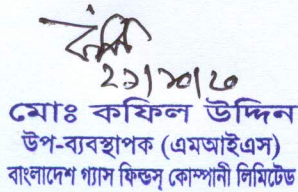 ২১/১০/২০
মোঃ কফিল উদ্দিন
উপ-ব্যবস্থাপক (এমআইএস)
বাংলাদেশ গ্যাস ফিল্ডস্ কোম্পানী লিমিটেড